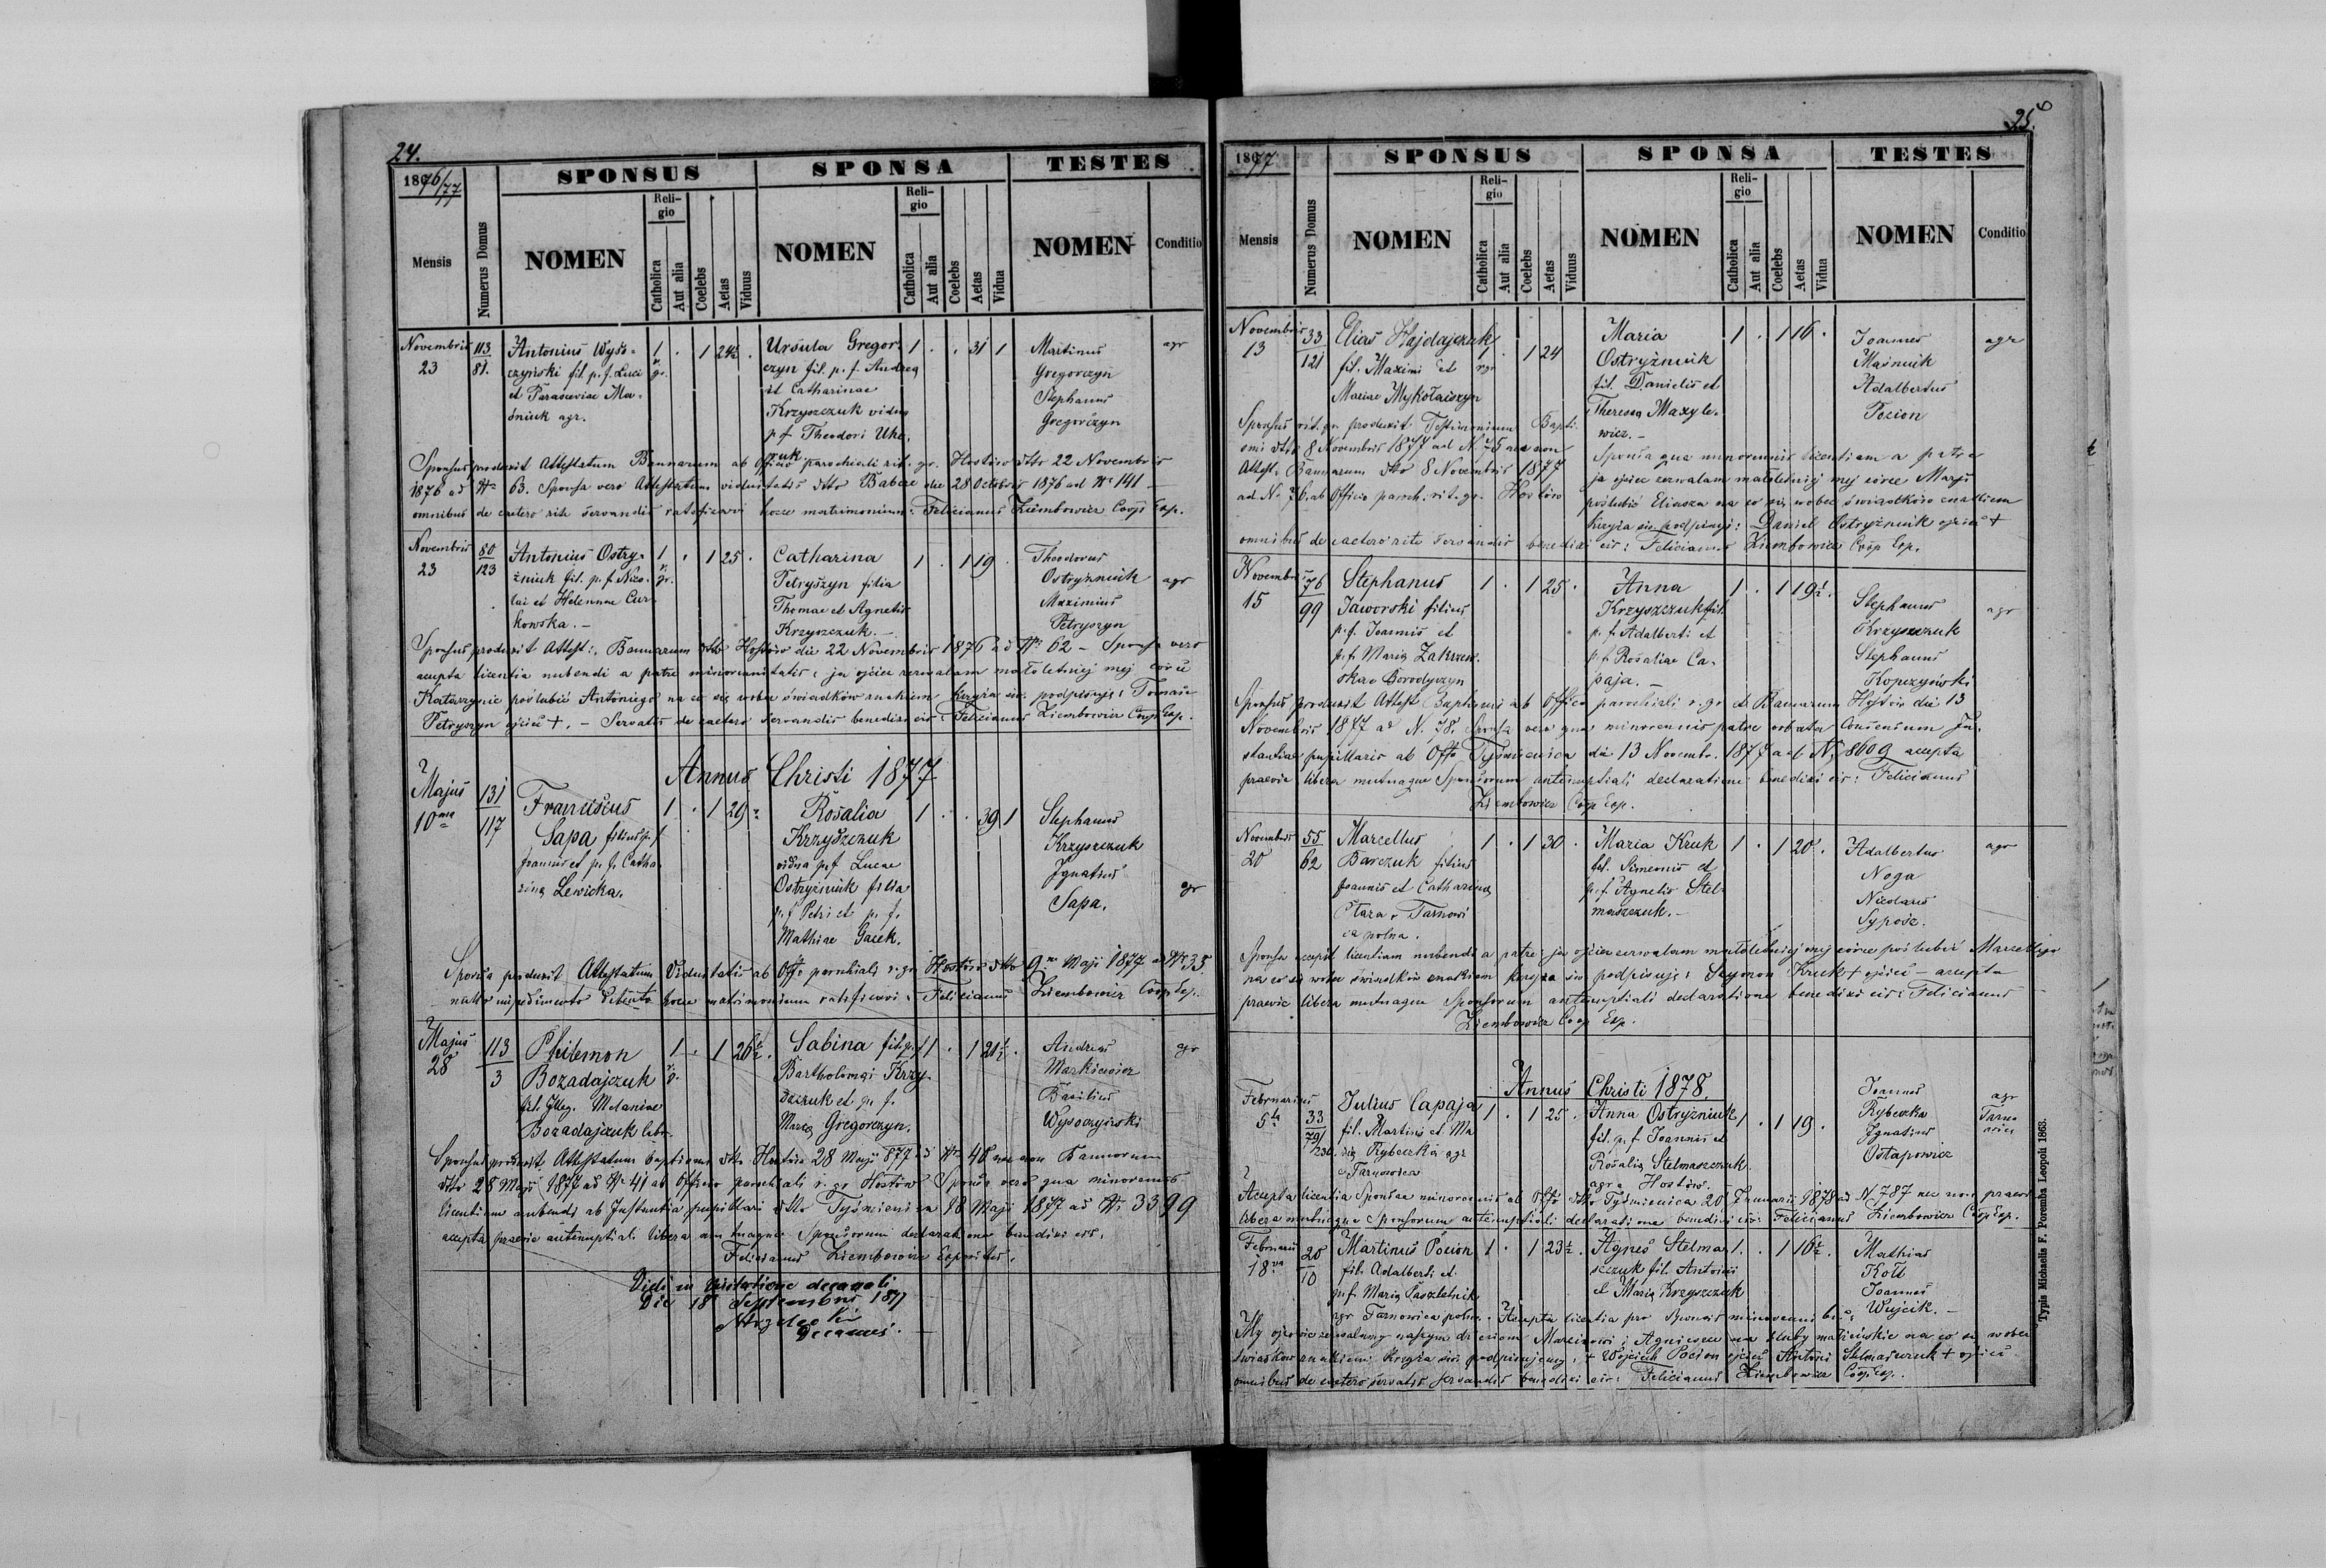 24.
1876/77
SPONSUS
SPONSA
TESTES
Mensis
Numerus Domus
NOMEN
Religio
Catholica
Aut alia
Coelebs
Aetas
Viduus
NOMEN
Religio
Catholica
Aut alia
Coelebs
Aetas
Vidua
NOMEN
Conditio
Novembris
23
113
81.
Antonius Wyso-
czyński fil p. f. Luci
et Parasceviae Ma-
śniuk agr.
1
r.
gr.
1 24½
Ursula Gregor-
czyn fil. p. f. Andrea
et Catharinae
Krzyszczuk vidua
p f Theodori
1 31 1
Martinus
Gregorczyn
Stephanus
Gregorczyn
agr
Sponsus produxit Attestatum Bannorum ab Officio parochiali rit. gr. Hostów dtto 22 Novembris
1876 ad Nr 63. Sponsa vero Attestatum viduitatis dtto die 28 Octobris 1876 ad Nr 141 —
omnibus de caetero rite servandis ratificavi hocce matrimonium: Felicianus Ziembowicz Coop Exp.
Novembris
23
80
123
Antonius Ostry-
żniuk fil. p. f. Nico-
lai et Helennae Cur-
kowska. —
1
r.
gr.
1 25
Catharina
Petryszyn filia
Thomae et Agnetis
Krzyszczuk. —
1 1 19
Theodorus
Ostryżniuk
Maximus
Petryszyn
agr
Sponsus produxit Attest: Bannorum dtto Hostów die 22 Novembris 1876 ad Nr 62 — Sponsa vero
accepta licentia nubendi a patre minorennitatis: ja ojciec zezwalam małoletniej mej córce
Katarzynie poślubić Antoniego na co się wobec świadków znakiem krzyża św. podpisuję: Tomasz
Petryszyn ojciec +. — Servatis de caetero servandis benedixi eis: Felicianus Ziembowicz Coop Exp.
Annus Christi 1877
Majus
10ma
131
117
Franciscus
Sapa filius p. f.
Joannis et p. f. Catha-
rina Lewicka.
1 1 29
Rosalia
Krzyszczuk
vidua p. f Lucae
Ostryżniuk filia
p. f Petri et p. f.
Mathiae Gacek.
1 39 1
Stephanus
Krzyszczuk
Ignatius
Sapa.
agr
Sponsa produxit Attestatum Viduitatis ab Offo parochiali r. gr. Hostów dtto 9na Maji 1877 ad Nr 35.
nullo impedimento detento hocce matrimonium ratificavi: Felicianus Ziembowicz Coop Exp.
Majus
28
113
3
Philemon
Bozadajczuk
fil. Illeg. Melaniae
Bozadajczuk
1
r.
g.
1 26½
Sabina fil. p. f
Bartholomaei Krzy-
szczuk et p. f.
Maria Gregorczyn.
1 1 21½
Andreas
Markiewicz
Basilius
Wysoczyński
agr
Sponsus produxit Attestatum baptismi dtto Hostów 28 Maji 877 ad Nr 40 nec non Bannorum
dtto 28 Maji 1877 ad Nr 41 ab Officio parochiali r. gr Hostów Sponsa vero qua minorennis
licentiam nubendi ab Instantia pupillari dtto Tyśmienica 18 Maji 1877 ad Nr 3399
accepta praevie antenuptiali libera ac mutuaque Sponsorum declaratione benedixi eis.
Felicianus Ziembowicz Expositus.
Vidi in Visitatione decanali
Die 18 Septembris 1877
Decanus.
25.
1877
SPONSUS
SPONSA
TESTES
Mensis
Numerus Domus
NOMEN
Religio
Catholica
Aut alia
Coelebs
Aetas
Viduus
NOMEN
Religio
Catholica
Aut alia
Coelebs
Aetas
Vidua
NOMEN
Conditio
Novembris
13
33
121
Elias Hajdajczuk
fil. Maximi et
Mariae Mykołaiszyn
1
r gr
1 24
Maria
Ostryżniuk
fil. Danielis et
Theresia Maxyle-
wicz. —
1 1 16
Joannes
Maśniuk
Adalbertus
Pocion
agr
Sponsus rit. gr. produxit Testimonium Bapti-
smi dtto 8 Novembris 1877 ad N. 75 nec non
Attest: Bannorum dtto 8 Novembris 1877
ad Nr 76 ab Officio paroch. rit. gr. Hostów
Sponsa qua minorennis licentiam a patre
ja ojciec zezwalam małoletniej mej córce Maryi
poślubić Eliasza na co się wobec świadków znakiem
krzyża św. podpisuję: Daniel Ostryżniuk ojciec +
omnibus de caetero rite servandis benedixi eis: Felicianus Ziembowicz Coop Exp.
Novembris
15
76
99
Stephanus
Jaworski filius
p. f. Joannis et
p. f. Maria Zakrzew-
ska v. Borodyczyn
1 1 25
Anna
Krzyszczuk fil.
p. f. Adalberti et
p. f Rosaliae Ca-
paja. —
1 1 19½
Stephanus
Krzyszczuk
Stephanus
Kopczyński
agr
Sponsus produxit Attest Baptismi ab Officio parochiali r. gr et Bannorum Hostów die 13
Novembris 1877 ad N. 78. Sponsa vero qua minorennis patre orbata Consensum In-
stantiae pupillaris ab Offo Tyśmienica die 13 Novembr. 1877 ad N. 8609 accepta
praevie libera mutuaque Sponsorum antenuptiali declaratione benedixi eis: Felicianus
Ziembowicz Coop Exp.
Novembris
20
55
62
Marcellus
Barczuk filius
Joannis et Catharina
Ctara v. Tarnowi-
ca polna.
1 1 30
Maria Kruk
fil. Simeonis et
p. f Agnetis Stel-
maszczuk. —
1 1 20
Adalbertus
Noga
Nicolaus
Syposz.
agr
Sponsa accepit licentiam nubendi a patre: ja ojciec zezwalam małoletniej mej córce poślubić Marcellego
na co się wobec świadków znakiem krzyża św. podpisuję: Szymon Kruk + ojciec — accepta
praevie libera mutuaque Sponsorum antenuptiali declaratione benedixi eis: Felicianus
Ziembowicz Coop Exp.
Annus Christi 1878.
Februarius
5ta
33
791
230.
Julius Capaja
fil. Martini et Ma-
ria Rybeczka agr
e Tarnowica
1 1 25
Anna Ostryżniuk
fil. p. f Joannis et
Rosalia Stelmaszczuk
agr e Hostów. —
1 1 19
Joannes
Rybeczka
Ignatius
Ostapowicz
agr
Tarno
wica
Accepta licentia Sponsae minorennis ab Offo dtto Tyśmienica 20 Januarii 1878 ad N. 787 nec non praevie
libera mutuaque Sponsorum antenuptiali declaratione benedixi eis: Felicianus Ziembowicz Coop Exp.
Februarii
18va
20
10
Martinus Pocion
fil. Adalberti et
p. f Maria Pasztelnik
agr Tarnowica polna.
1 1 23½
Agnes Stelma-
szczuk fil. Antonii
et Maria Krzyszczuk
1 1 16½
Mathias
Kott
Joannes
Wujcik. —
Accepta licentia pro Sponsis minorennibus:
My ojcowie zezwalamy naszym dzieciom Marcinowi i Agnieszce na śluby małżeńskie na co się wobec
świadków znakiem krzyża św. podpisujemy: + Wojciech Pocion ojciec Antoni Stelmaszczuk + ojciec
omnibus de caetero servatis servandis benedixi eis: Felicianus Ziembowicz Coop Exp.
Typis Michaelis F. Poremba Leopoli 1863.